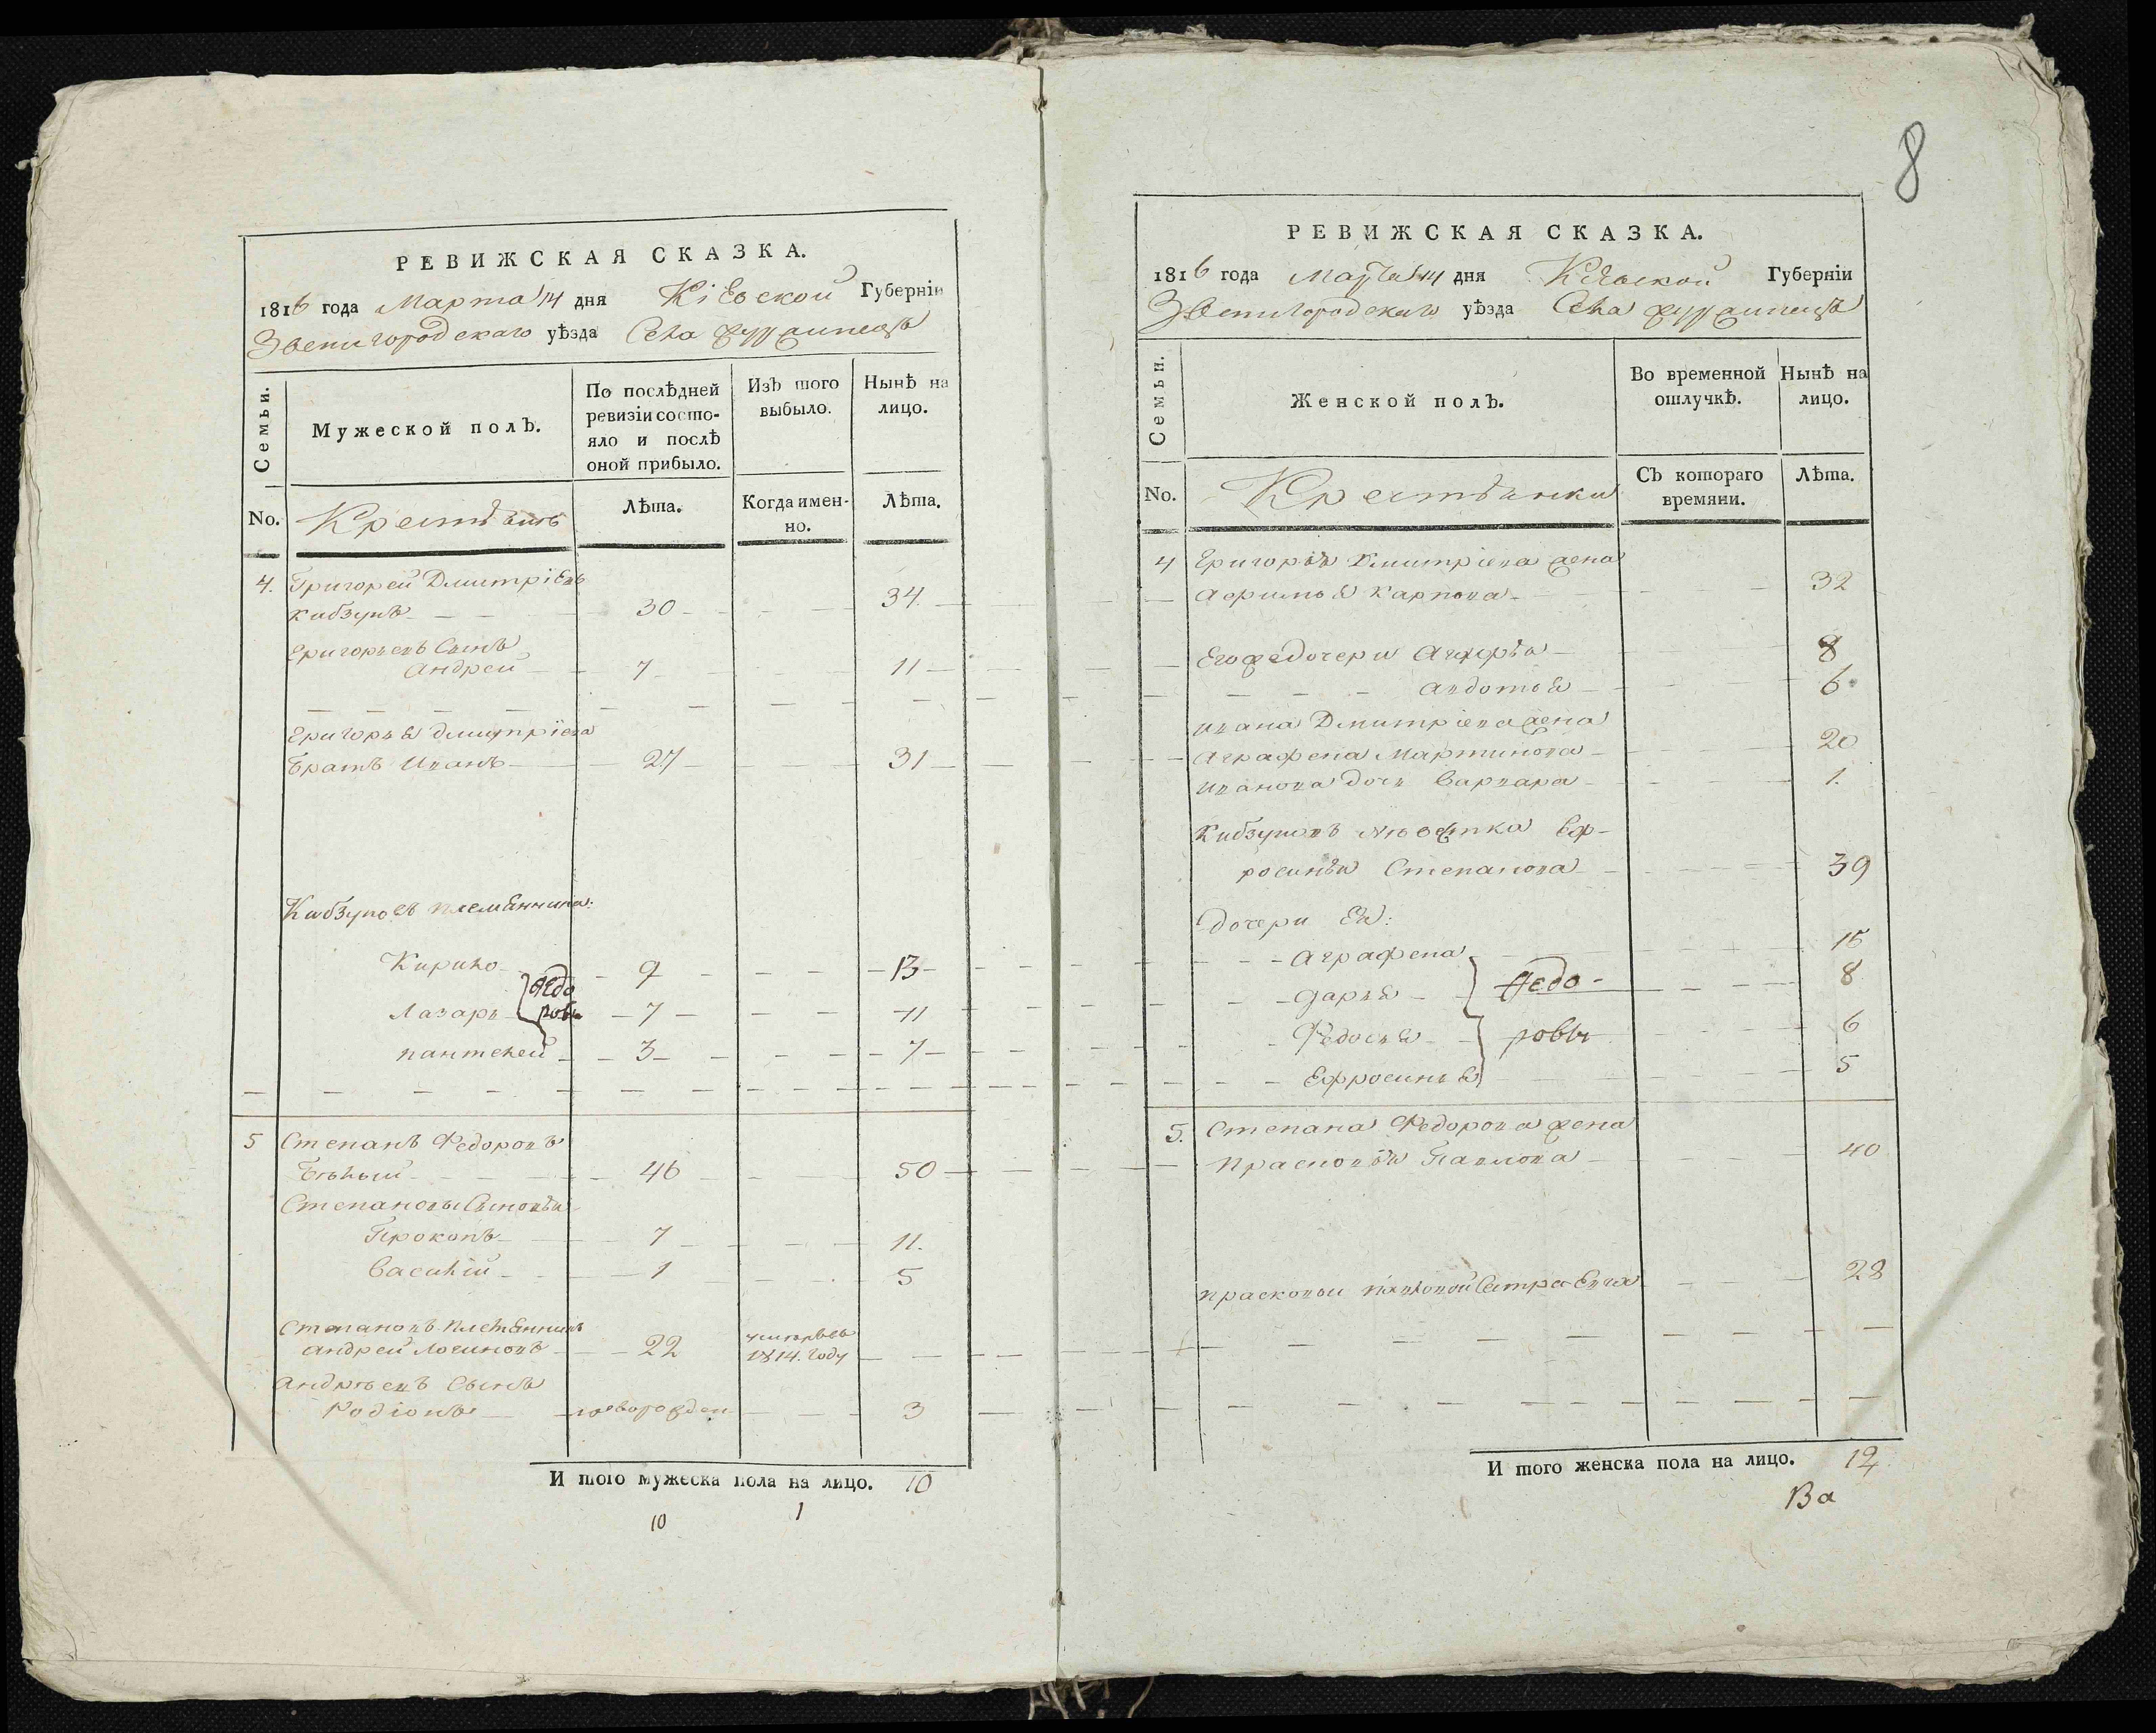 РЕВИЖСКАЯ СКАЗКА.
1816 года Марта 14 дня Кіевской Губерніи
Звенигородскаго уѣзда Села
Семьи.
Мужеской полЪ.
По послѣдней
ревизіи состо-
яло и послѣ
оной прибыло.
ИзЪ того
выбыло.
Нынѣ на
лицо.
No.
Крестьянъ
Лѣта.
Когда имен-
но.
Лѣта.
4. Григорей Дмитріевъ
Кибзунъ 30 34
Григорьевъ Сынъ
Андрей 7 11
Григорья Дмитріева
Братъ Иванъ 27 31
Кибзуновъ племянники:
Кирило 9 13
Федо
Лазарь ровы 7 11
пантелей 3 7
5 Степанъ Федоровъ
Бѣлый 46 50
Степановы Сыновья
Прокопъ 7 11.
Василій 1 5
Степановъ Племянникъ
Андрей Логиновъ 22 умре въ 1814. году
Андрѣевъ Сынъ
Родіонъ новорожден 3
И того мужеска пола на лицо. 10
10 1
8
РЕВИЖСКАЯ СКАЗКА.
1816 года Марта 14 дня Кіевской Губерніи
Звенигородскаго уѣзда Села
Семьи.
Женской полЪ.
Во временной
отлучкѣ.
Нынѣ на
лицо.
No.
Крестьянки
СЪ котораго
времяни.
Лѣта.
4 Григорія Дмитріева жена
Карпова 32
Его же дочери 8
Авдотья 6
Ивана Дмитріева жена
Аграфена Мартинова 20
Иванова дочь Варвара 1.
Кибзуновъ Еф-
росинья Степанова 39
Дочери Ея:
Аграфена 15
Дарья Федо- 8
Федосья ровы 6
Ефросинья 5
5. Степана Федорова жена
Прасковья Павлова 40
Прасковьи Павловой Сестра 28
И того женска пола на лицо. 12